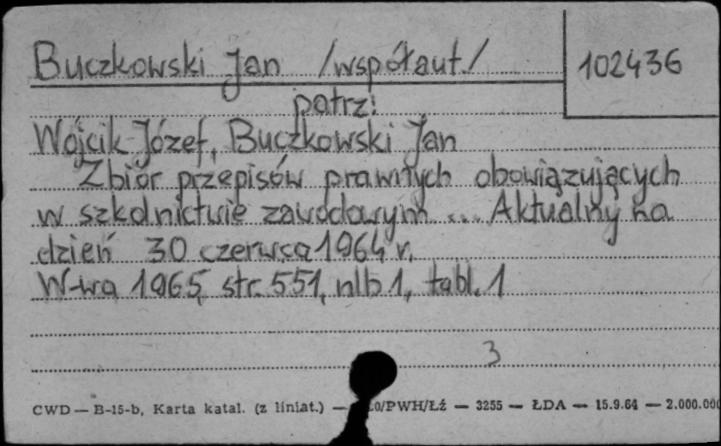 Buczkowski Jan /współaut./
102436
patrz:
Wójcik Józef, Buczkowski Jan
Zbiór przepisów prawnych obowiązujących
w szkolnictwie zawodowym ... Aktualny na
dzień 30 czerwca 1964 r.
W-wa 1965, str. 551, nlb 1, tabl. 1
3
CWD — B-15-b, Karta katal. (z liniat.) — /PWH/Łź — 3255 — ŁDA — 15.9.64 — 2.000.000